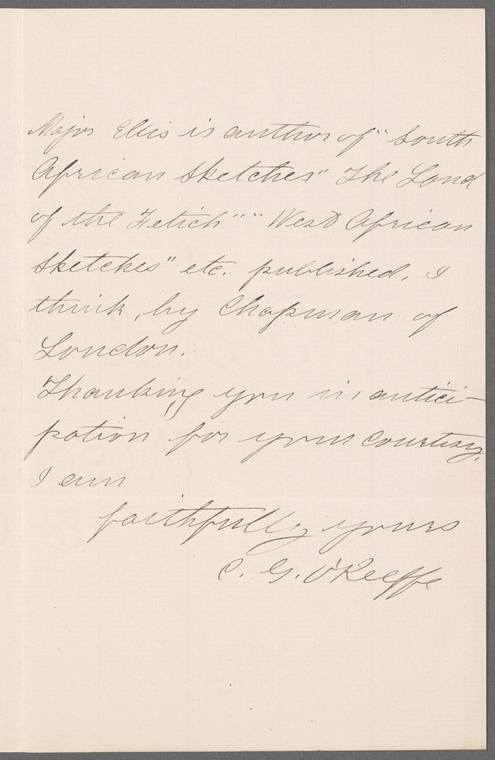 Major Ellis is author of "South
African Sketches" The Land
of the Fetich" "West African
Sketches" etc. published, I
think, by Chapman of
London.
Thanking you in antici-
pation for your courtesy,
I am
faithfully yours
C. G. O'Keeffe